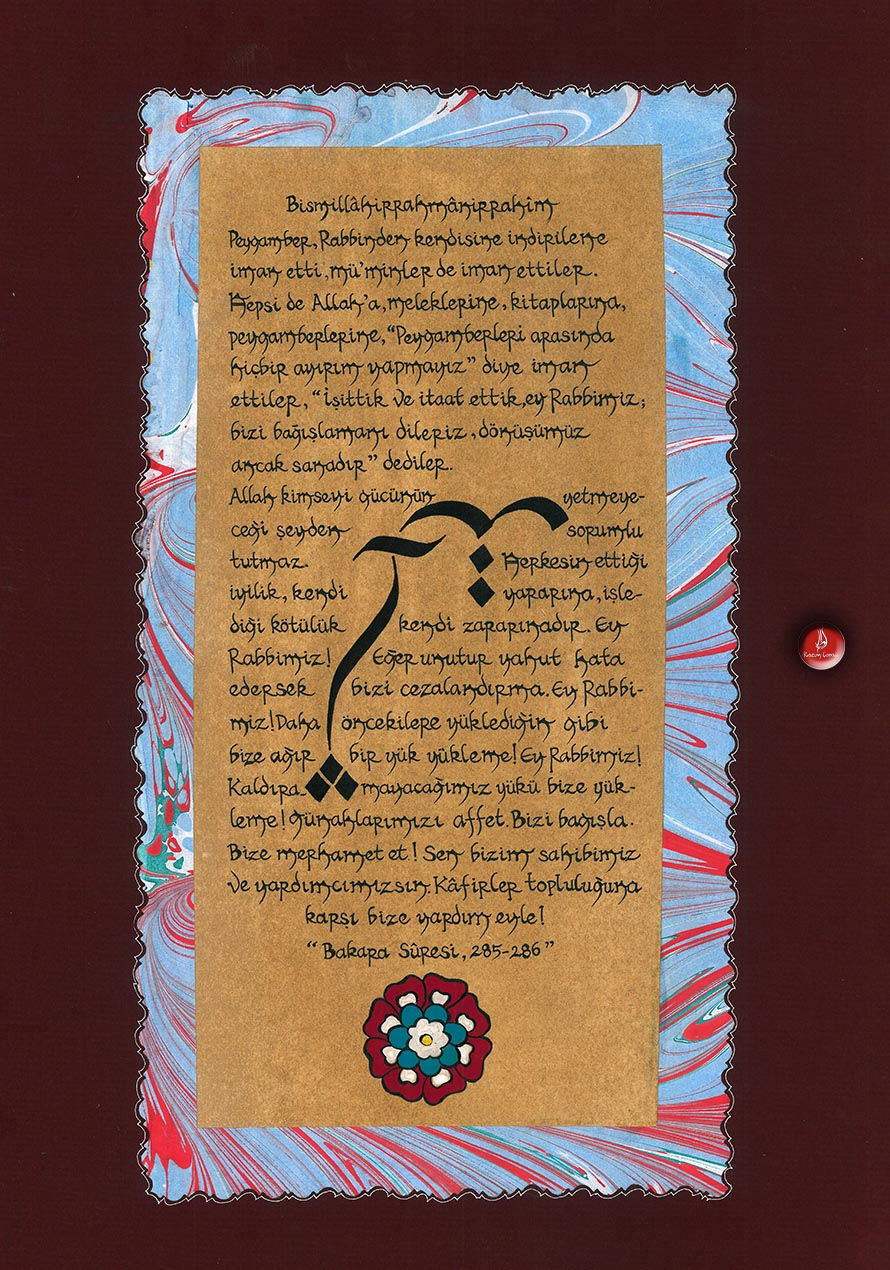 Bismillâhirrahmânirrahîm
Peygamber, Rabbinden kendisine indirilene
iman etti, mü'minler de iman ettiler.
Hepsi de Allah'a, meleklerine, kitaplarına,
peygamberlerine, "Peygamberleri arasında
hiçbir ayırım yapmayız" diye iman
ettiler, "İşittik ve itaat ettik, ey Rabbimiz;
bizi bağışlamanı dileriz, dönüşümüz
ancak sanadır" dediler.
Allah kimseyi gücünün yetmeye-
ceği şeyden sorumlu
tutmaz. Herkesin ettiği
iyilik, kendi yararına, işle-
diği kötülük kendi zararınadır. Ey
Rabbimiz! Eğer unutur yahut hata
edersek bizi cezalandırma. Ey Rabbi-
miz! Daha öncekilere yüklediğin gibi
bize ağır bir yük yükleme! Ey Rabbimiz!
Kaldıra mayacağımız yükü bize yük-
leme! Günahlarımızı affet. Bizi bağışla.
Bize merhamet et! Sen bizim sahibimiz
ve yardımcımızsın. Kâfirler topluluğuna
karşı bize yardım eyle!
"Bakara Sûresi, 285-286"